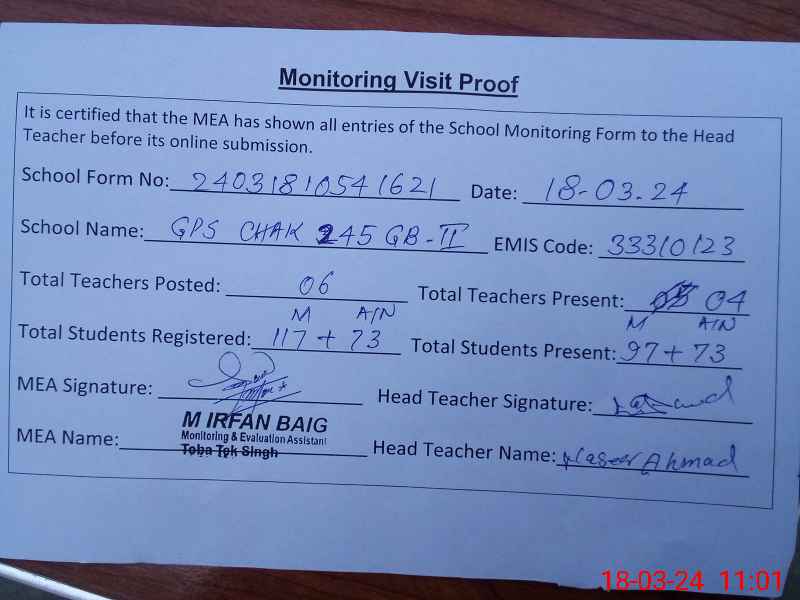 Monitoring Visit Proof
It is certified that the MEA has shown all entries of the School Monitoring Form to the Head
Teacher before its online submission.
School Form No: 24031810541621 Date: 18-03.24
School Name: GPS CHAK 245 GB-II EMIS Code: 33310123
Total Teachers Posted: 06 Total Teachers Present: 04
M A/N M A/N
Total Students Registered: 117 + 73 Total Students Present: 97 + 73
MEA Signature: Head Teacher Signature:
MEA Name: M IRFAN BAIG Head Teacher Name: Naseer Ahmad
Monitoring & Evaluation Assistant
Toba Tek Singh
18-03-24 11:01